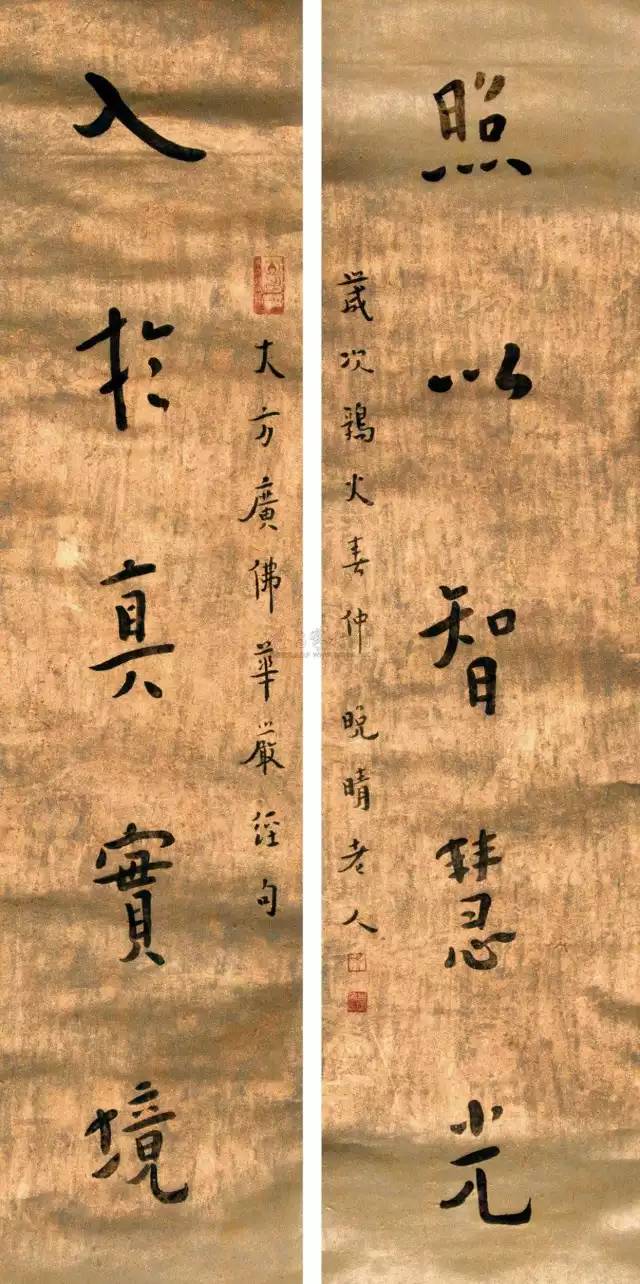 照以智慧光
歲次鶉火春仲晚晴老人
大方廣佛華嚴經句
入於真實境